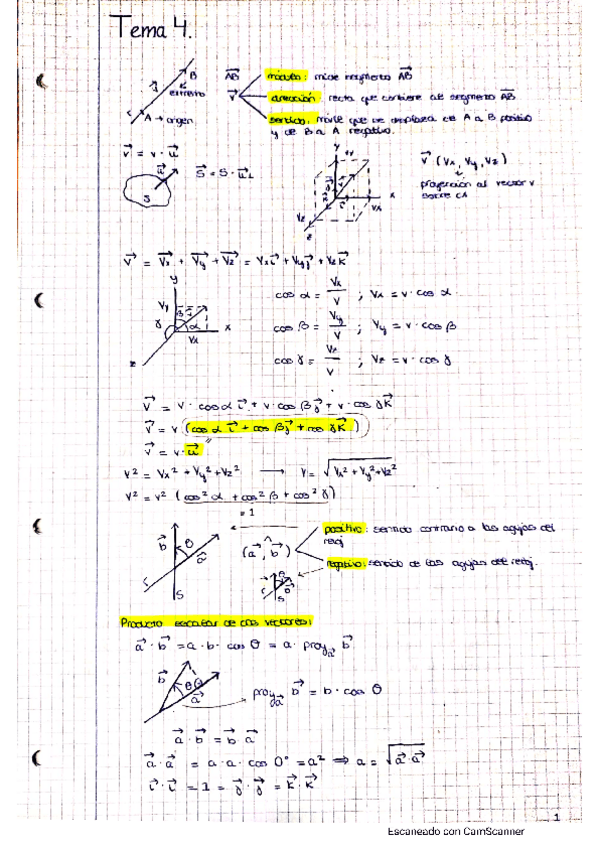 Tema 4.
B
extremo
A → origen
r
AB
v
módulo: mide segmento AB
dirección: recta que contiene al segmento AB
sentido: móvil que se desplaza de A a B positivo
y de B a A negativo.
v = v · u
u
S
S = S · u⊥
y
vy
x
vx
vz
z
v (vx, vy, vz)
proyección al vector v
v = vx + vy + vz = vx i + vy j + vz k
y
vy
β
α
γ
vx
x
z
cos α = vx / v ; vx = v · cos α
cos β = vy / v ; vy = v · cos β
cos γ = vz / v ; vz = v · cos γ
v = v · cos α i + v · cos β j + v · cos γ k
v = v (cos α i + cos β j + cos γ k)
v = v · u
v² = vx² + vy² + vz² → v = √(vx² + vy² + vz²)
v² = v² (cos² α + cos² β + cos² γ)
= 1
b
θ
a
r
s
(a, b)
positivo: sentido contrario a las agujas del
reloj
negativo: sentido de las agujas del reloj.
Producto escalar de dos vectores:
a · b = a · b · cos θ = a · proy a b
b
θ
a
proy a b = b · cos θ
a · b = b · a
a · a = a · a · cos 0° = a² ⇒ a = √(a · a)
i · i = 1 = j · j = k · k
1
Escaneado con CamScanner